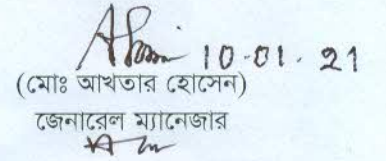 10-01-21
(মোঃ আখতার হোসেন)
জেনারেল ম্যানেজার